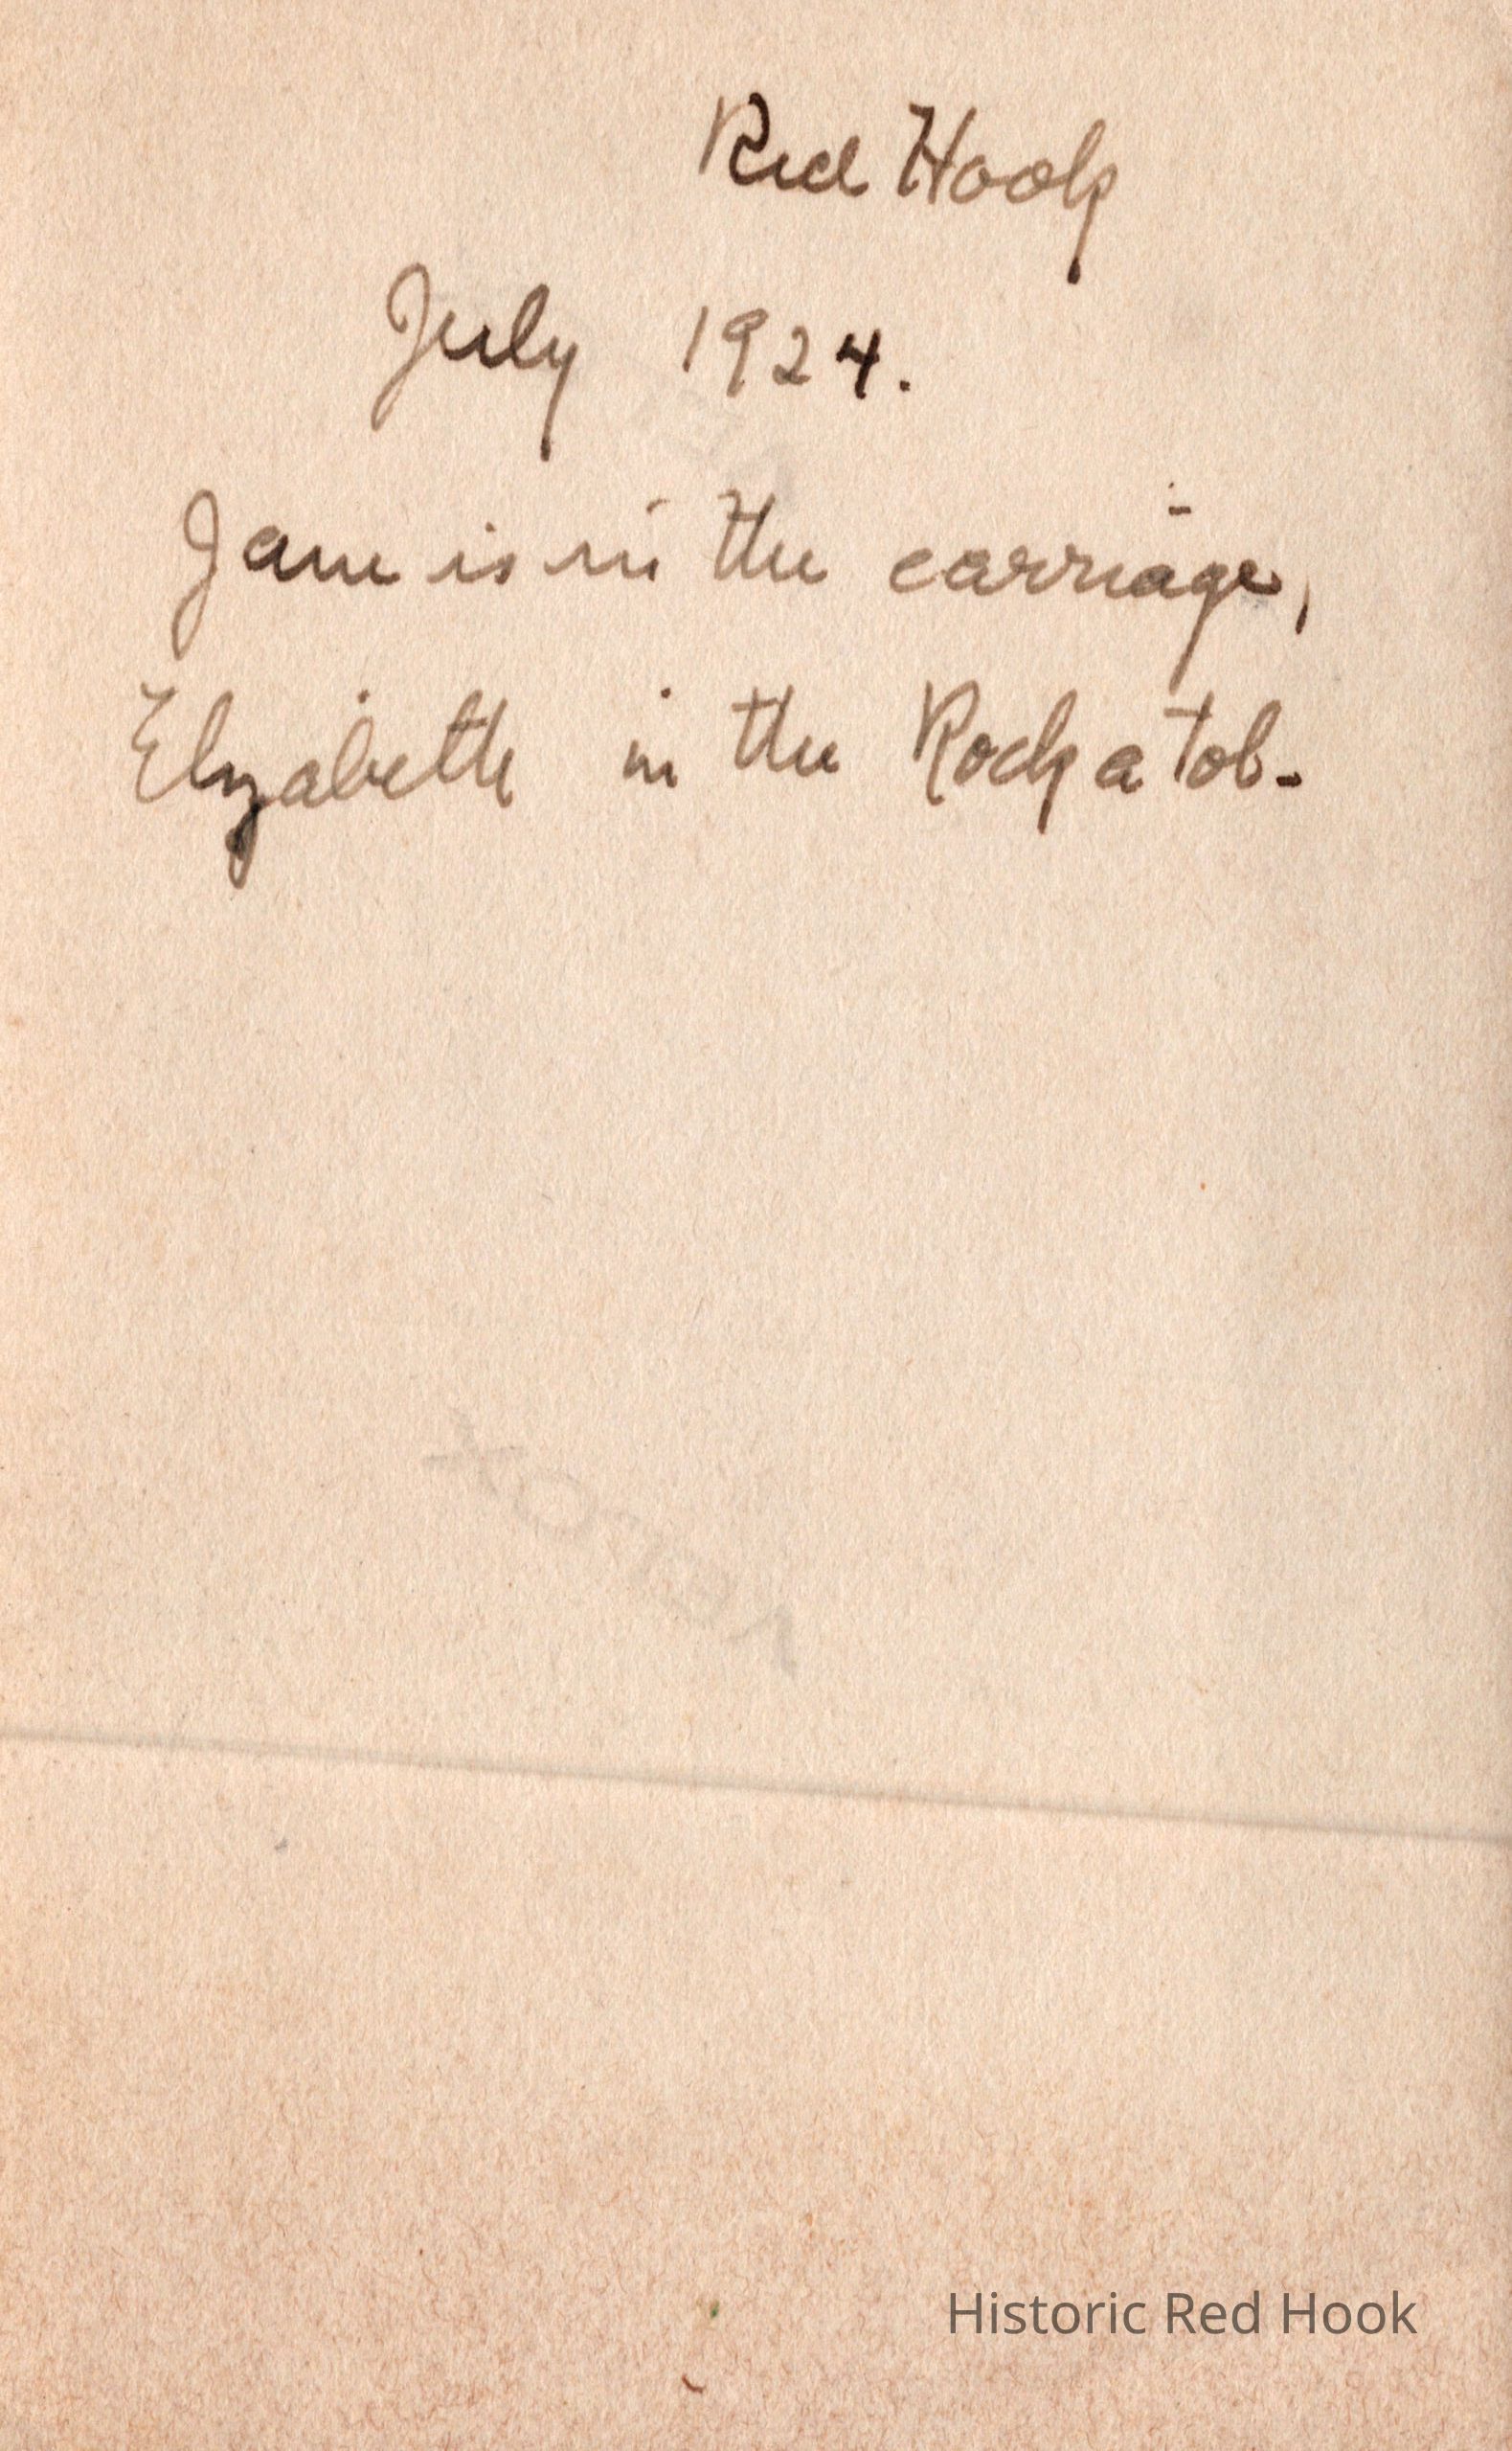 Red Hook
July 1924.
Jane is in the carriage,
Elizabeth in the Rock a tob.
VELOX
Historic Red Hook